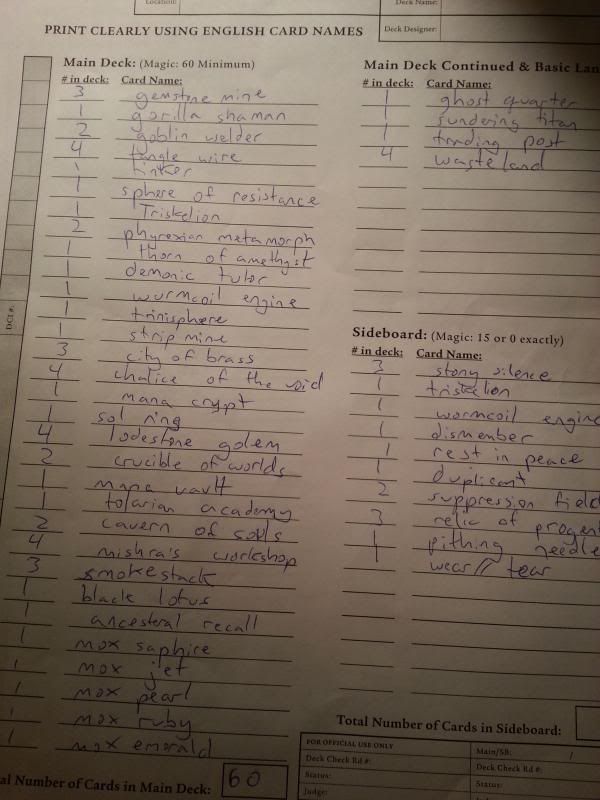 Location:
Deck Name:
PRINT CLEARLY USING ENGLISH CARD NAMES
Deck Designer:
Main Deck: (Magic: 60 Minimum)
# in deck: Card Name:
3 gemstone mine
1 gorilla shaman
2 goblin welder
4 tangle wire
1 tinker
1 sphere of resistance
1 Triskelion
2 phyrexian metamorph
1 thorn of amethyst
1 demonic tutor
1 wurmcoil engine
1 trinisphere
1 strip mine
3 city of brass
4 chalice of the void
1 mana crypt
1 sol ring
4 lodestone golem
2 crucible of worlds
1 mana vault
1 tolarian academy
2 cavern of souls
4 mishra's workshop
3 smokestack
1 black lotus
1 ancestral recall
1 mox saphire
1 mox jet
1 mox pearl
1 mox ruby
1 mox emerald
al Number of Cards in Main Deck: 60
DCI #:
Main Deck Continued & Basic Lan
# in deck: Card Name:
1 ghost quarter
1 sundering titan
1 trading post
4 wasteland
Sideboard: (Magic: 15 or 0 exactly)
# in deck: Card Name:
3 stony silence
1 triskelion
1 wormcoil engine
1 dismember
1 rest in peace
1 duplicant
2 suppression field
3 relic of progen
1 pithing needle
1 wear// tear
Total Number of Cards in Sideboard:
FOR OFFICIAL USE ONLY
Deck Check Rd #:
Status:
Judge:
Main/SB: /
Deck Check Rd #:
Status:
Judge: